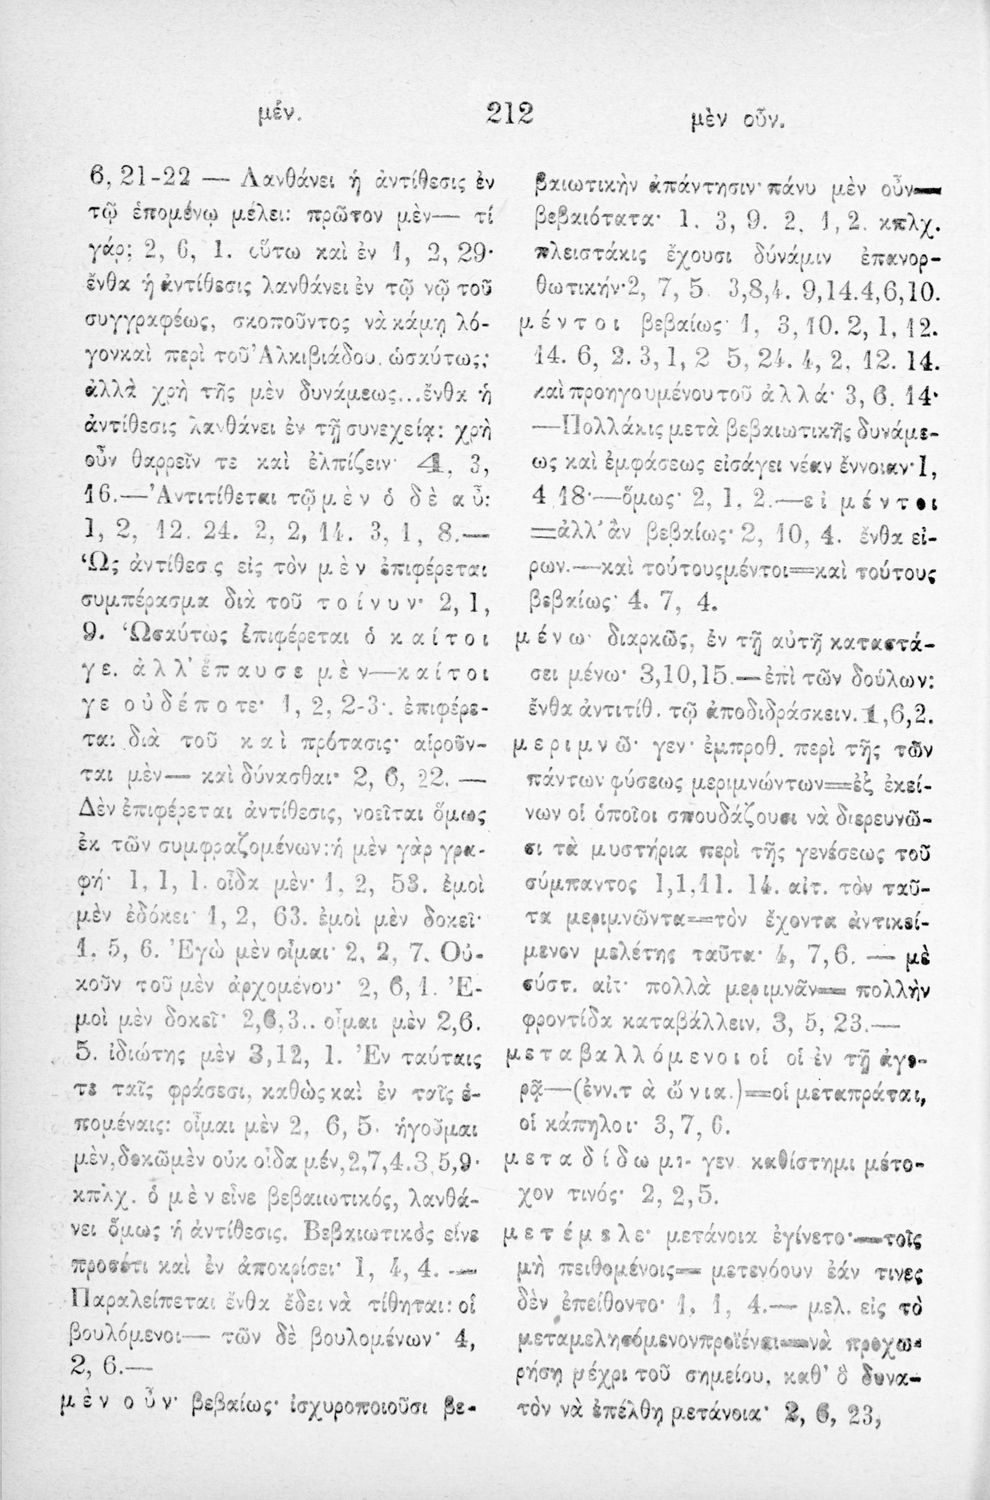 μέν.
212
μὲν οὖν.
6, 21-22 — Λανθάνει ἡ ἀντίθεσις ἐν
τῷ ἑπομένῳ μέλει: πρῶτον μὲν— τί
γάρ; 2, 6, 1. οὕτω καὶ ἐν 1, 2, 29·
ἔνθα ἡ ἀντίθεσις λανθάνει ἐν τῷ νῷ τοῦ
συγγραφέως, σκοποῦντος νὰ κάμῃ λό-
γον καὶ περὶ τοῦ Ἀλκιβιάδου. ὡσαύτως:
ἀλλὰ χρὴ τῆς μὲν δυνάμεως...ἔνθα ἡ
ἀντίθεσις λανθάνει ἐν τῇ συνεχείᾳ: χρὴ
οὖν θαρρεῖν τε καὶ ἐλπίζειν· 4, 3,
16.—Ἀντιτίθεται τῷ μὲν ὁ δὲ αὖ:
1, 2, 12. 24. 2, 2, 14. 3, 1, 8.—
Ὡς ἀντίθεσις εἰς τὸν μὲν ἐπιφέρεται
συμπέρασμα διὰ τοῦ τοίνυν· 2, 1,
9. Ὡσαύτως ἐπιφέρεται ὁ καίτοι
γε. ἀλλ' ἔπαυσε μὲν—καίτοι
γε οὐδέποτε· 1, 2, 2-3·. ἐπιφέρε-
ται διὰ τοῦ καὶ πρότασις· αἱροῦν-
ται μὲν— καὶ δύνασθαι· 2, 6, 22. —
Δὲν ἐπιφέρεται ἀντίθεσις, νοεῖται ὅμως
ἐκ τῶν συμφραζομένων: ἡ μὲν γὰρ γρα-
φή· 1, 1, 1. οἶδα μὲν· 1, 2, 53. ἐμοὶ
μὲν ἐδόκει· 1, 2, 63. ἐμοὶ μὲν δοκεῖ·
1, 5, 6. Ἐγὼ μὲν οἶμαι· 2, 2, 7. Οὐ-
κοῦν τοῦ μὲν ἀρχομένου· 2, 6, 1. Ἐ-
μοὶ μὲν δοκεῖ· 2,6,3.. οἶμαι μὲν 2,6.
5. ἰδιώτης μὲν 3,12, 1. Ἐν ταύταις
τε ταῖς φράσεσι, καθὼς καὶ ἐν ταῖς ἑ-
πομέναις: οἶμαι μὲν 2, 6, 5· ἡγοῦμαι
μὲν, δοκῶ μὲν οὐκ οἶδα μέν, 2,7,4. 3,5,9·
κπλχ. ὁ μὲν εἶνε βεβαιωτικός, λανθά-
νει ὅμως ἡ ἀντίθεσις. Βεβαιωτικὸς εἶνε
προσέτι καὶ ἐν ἀποκρίσει· 1, 4, 4. —
Παραλείπεται ἔνθα ἔδει νὰ τίθηται: οἱ
βουλόμενοι— τῶν δὲ βουλομένων· 4,
2, 6.—
μὲν οὖν· βεβαίως· ἰσχυροποιοῦσι βε-
βαιωτικὴν ἀπάντησιν· πάνυ μὲν οὖν=
βεβαιότατα· 1. 3, 9. 2, 1, 2. κπλχ.
πλειστάκις ἔχουσι δύναμιν ἐπανορ-
θωτικήν· 2, 7, 5. 3,8,4. 9,14. 4,6,10.
μέντοι βεβαίως· 1, 3, 10. 2, 1, 12.
14. 6, 2. 3, 1, 2 5, 24. 4, 2, 12. 14.
καὶ προηγουμένου τοῦ ἀλλά· 3, 6. 14·
—Πολλάκις μετὰ βεβαιωτικῆς δυνάμε-
ως καὶ ἐμφάσεως εἰσάγει νέαν ἔννοιαν· 1,
4 18·—ὅμως· 2, 1, 2.—εἰ μέντοι
=ἀλλ' ἂν βεβαίως· 2, 10, 4. ἔνθα εἰ-
ρων.—καὶ τούτους μέντοι=καὶ τούτους
βεβαίως· 4. 7, 4.
μένω· διαρκῶς, ἐν τῇ αὐτῇ καταστά-
σει μένω· 3,10,15.—ἐπὶ τῶν δούλων:
ἔνθα ἀντιτίθ. τῷ ἀποδιδράσκειν. 1,6,2.
μεριμνῶ· γεν· ἐμπροθ. περὶ τῆς τῶν
πάντων φύσεως μεριμνώντων=ἐξ ἐκεί-
νων οἱ ὁποῖοι σπουδάζουσι νὰ διερευνῶ-
σι τὰ μυστήρια περὶ τῆς γενέσεως τοῦ
σύμπαντος 1,1,11. 14. αἰτ. τὸν ταῦ-
τα μεριμνῶντα=τὸν ἔχοντα ἀντικεί-
μενον μελέτης ταῦτα· 4, 7,6. — μὲ
σύστ. αἰτ· πολλὰ μεριμνᾶν= πολλὴν
φροντίδα καταβάλλειν. 3, 5, 23.—
μεταβαλλόμενοι οἱ οἱ ἐν τῇ ἀγο-
ρᾷ—(ἐνν. τὰ ὤνια.)=οἱ μεταπράται,
οἱ κάπηλοι· 3, 7, 6.
μεταδίδωμι· γεν. καθίστημι μέτο-
χον τινός· 2, 2, 5.
μετέμελε· μετάνοια ἐγίνετο·—τοῖς
μὴ πειθομένοις= μετενόουν ἐάν τινες
δὲν ἐπείθοντο· 1, 1, 4.— μελ. εἰς τὸ
μεταμελησόμενον προϊέναι=νὰ προχω-
ρήσῃ μέχρι τοῦ σημείου, καθ' ὃ δυνα-
τὸν νὰ ἐπέλθῃ μετάνοια· 2, 6, 23,